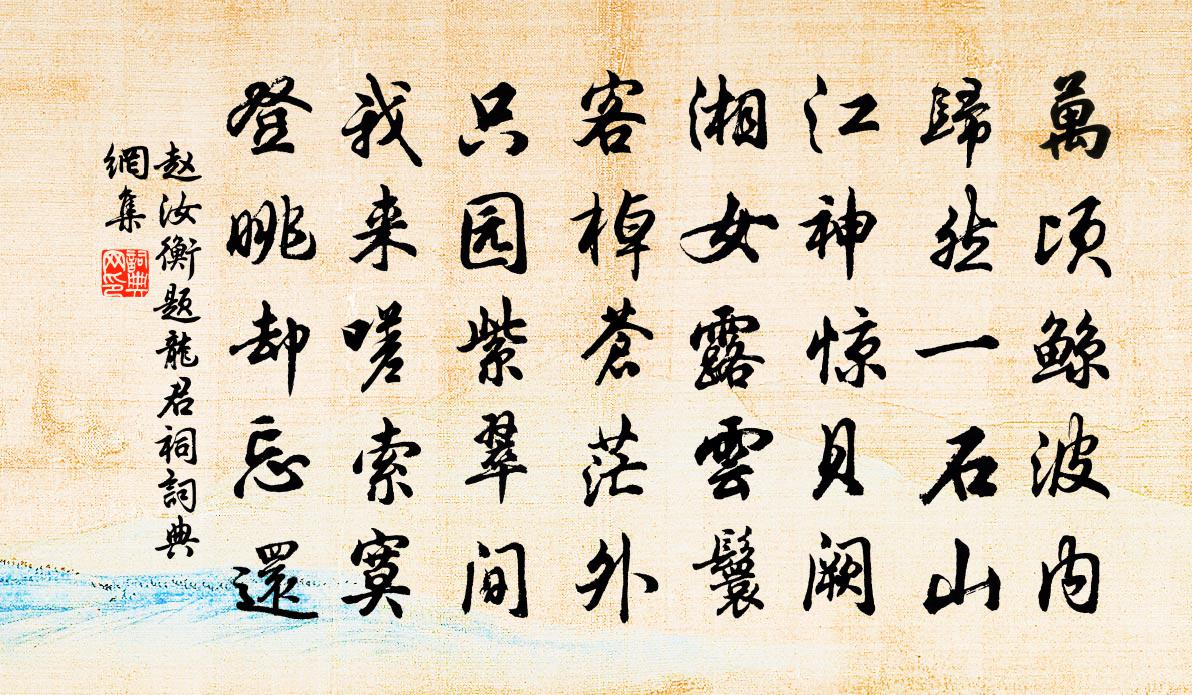 萬頃鲸波内
歸然一石山
江神惊贝阙
湘女露雲鬟
客棹蒼茫外
只园紫翠间
我来嗟索寞
登眺却忘還
赵汝衡题龍君祠詞典
網集
詞典
网印